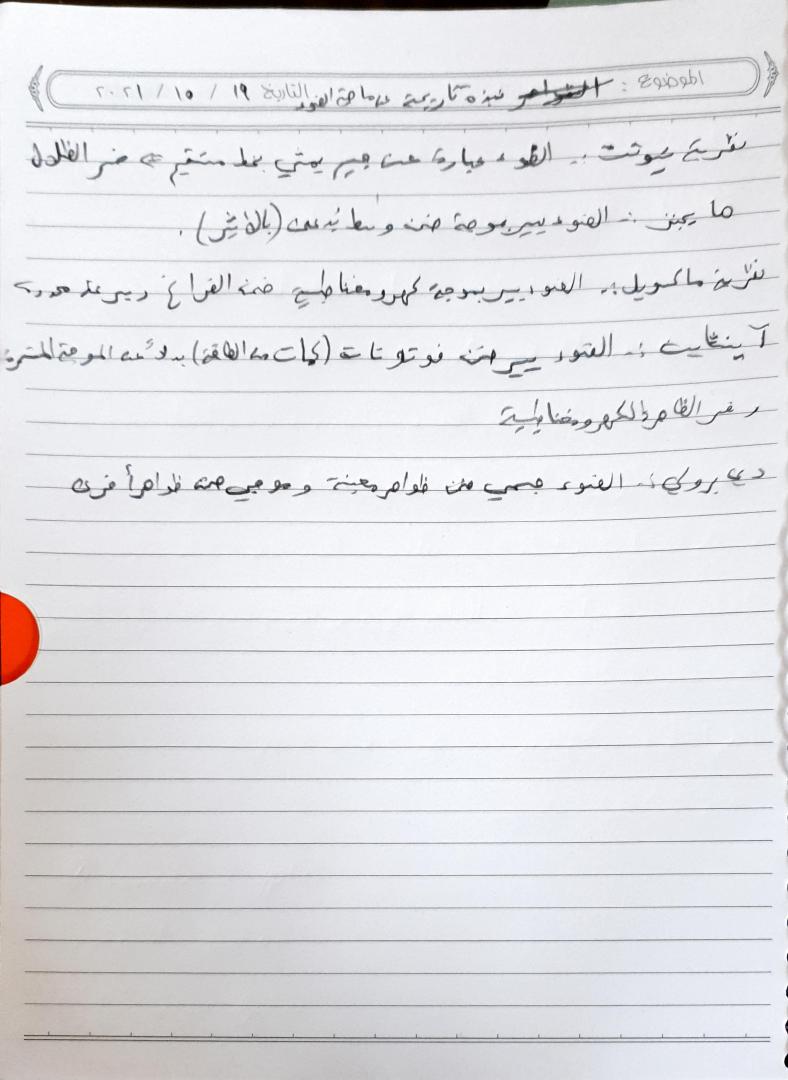 الموضوع : نبذة تاريخية عن ماهية الضوء التاريخ ١٩ / ١٠ / ٢٠٢١
نظرية نيوتن :. الضوء عبارة عن جسيم يمشي بخط مستقيم ⇐ فسر الظلال
هايجنز :. الضوء يسير بموجة ضمن وسط يُدعى (بالأثير) .
نظرية ماكسويل :. الضوء يسير بموجة كهرومغناطيسية ضمن الفراغ وبسرعة محدودة
آينشتاين :. الضوء يسير ضمن فوتونات (كمات من الطاقة) بدلاً من الموجة المستمرة
وفسر الظاهرة الكهرومغناطيسية
دي بروكي :. الضوء جسمي ضمن ظواهر معينة وموجي ضمن ظواهر أخرى